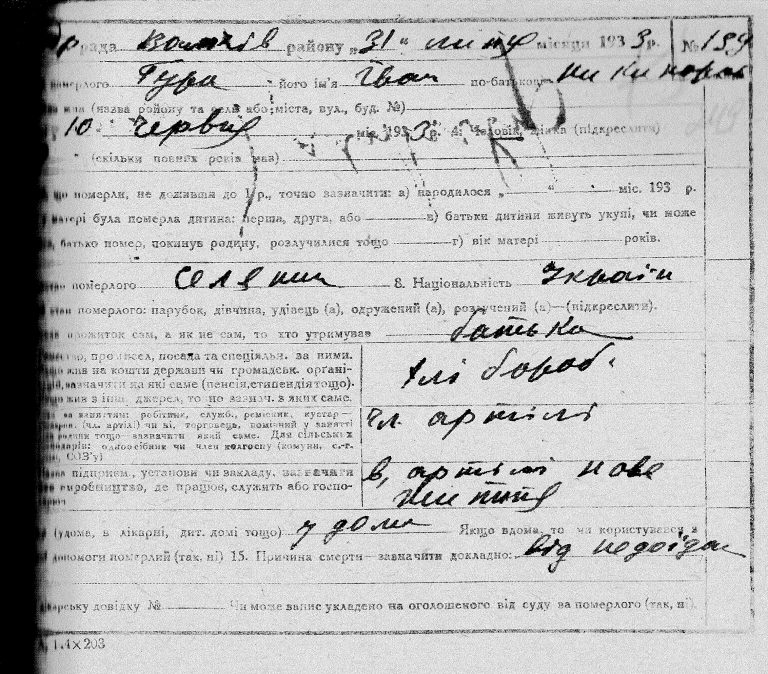 рада Вовчків району „31“ липня місяця 193 3 р. № 139
померлого Гура його ім'я Іван по-батькову Никипоров
(назва району та села або міста, вул., буд. №)
10 червня міс. 193 3 р. 4. Чоловік, жінка (підкреслити)
(скільки повних років мав)
що померли, не доживши до 1 р., точно зазначити: а) народилося „ “ міс. 193 р.
матері була померла дитина: перша, друга, або в) батьки дитини живуть укупі, чи може
батько помер, покинув родину, розлучилися тощо г) вік матері років.
померлого селянин 8. Національність Україн
померлого: парубок, дівчина, удівець (а), одружений (а), розлучений (а)—(підкреслити).
прожиток сам, а як не сам, то хто утримував батько
промисел, посада та спеціальн. за ними.
жив на кошти держави чи громадськ. органі-
зазначити на які саме (пенсія, стипендія тощо).
жив з інш. джерел, то що зазнач. з яких саме.
хлібороб.
за заняттям: робітник, служб., ремісник, кустар—
(чл. артілі) чи ні, торговець, помічний у занятті
родини тощо зазначити який саме. Для сільських
одноосібник чи член колгоспу (комуни, с.-г.
СОЗ'у)
чл. артілі
підприєм., установи чи закладу, зазначити
виробництво, де працює, служить або госпо-
в, артілі нове
життя
(удома, в лікарні, дит. домі тощо) у дома Якщо вдома, то чи користувався з
допомоги померлий (так, ні) 15. Причина смерти—зазначити докладно: від недоїдан
лікарську довідку № Чи може запис укладено на оголошеного від суду за померлого (так, ні).
1.4×203